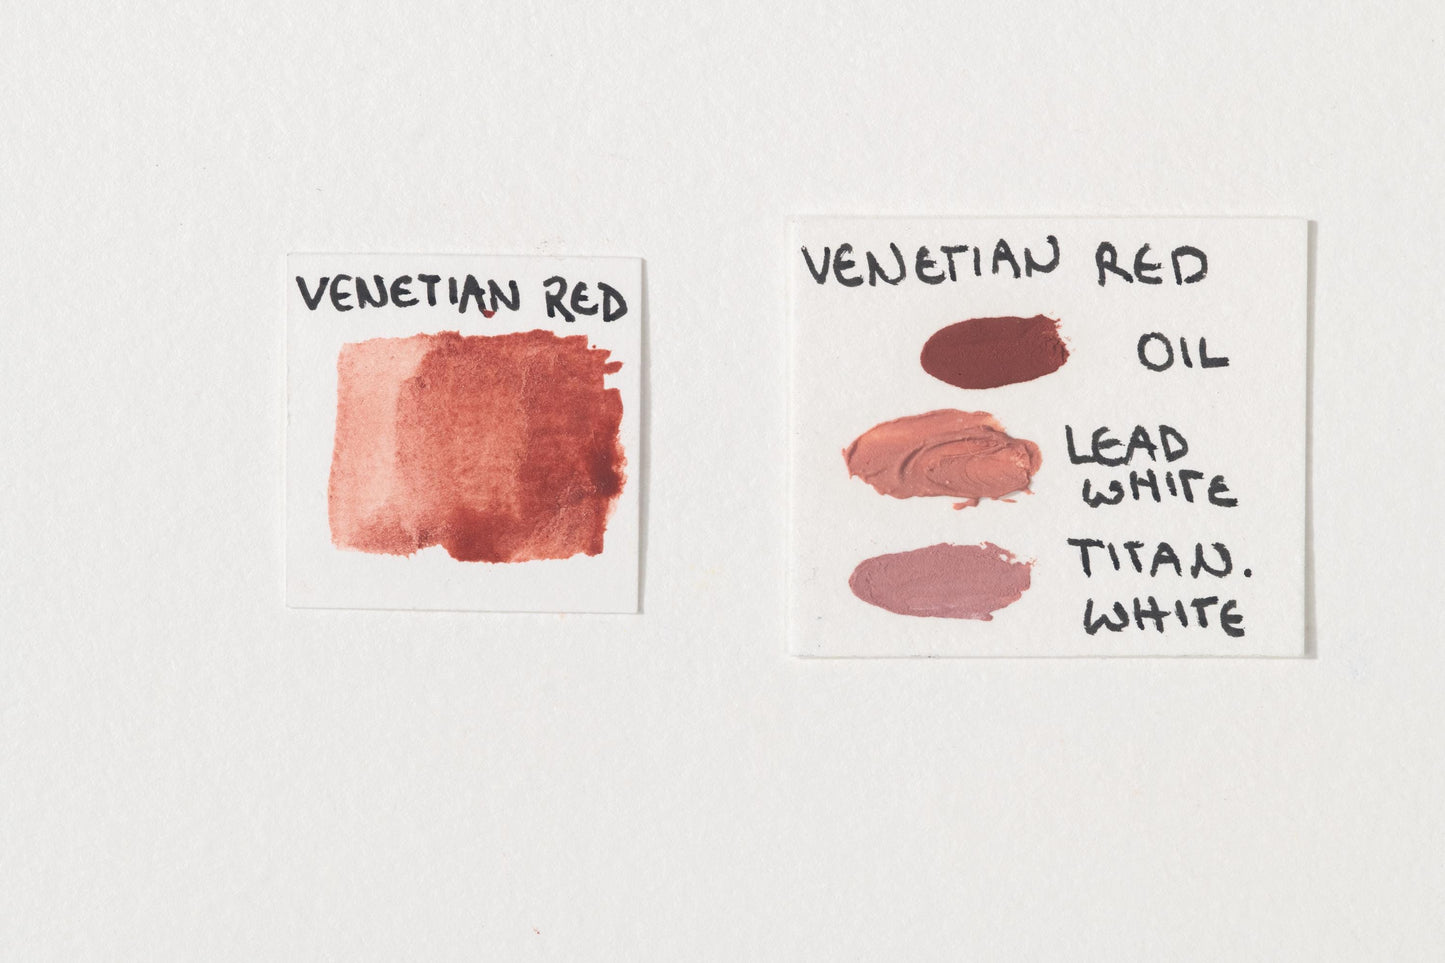 VENETIAN RED
VENETIAN RED
OIL
LEAD
WHITE
TITAN.
WHITE